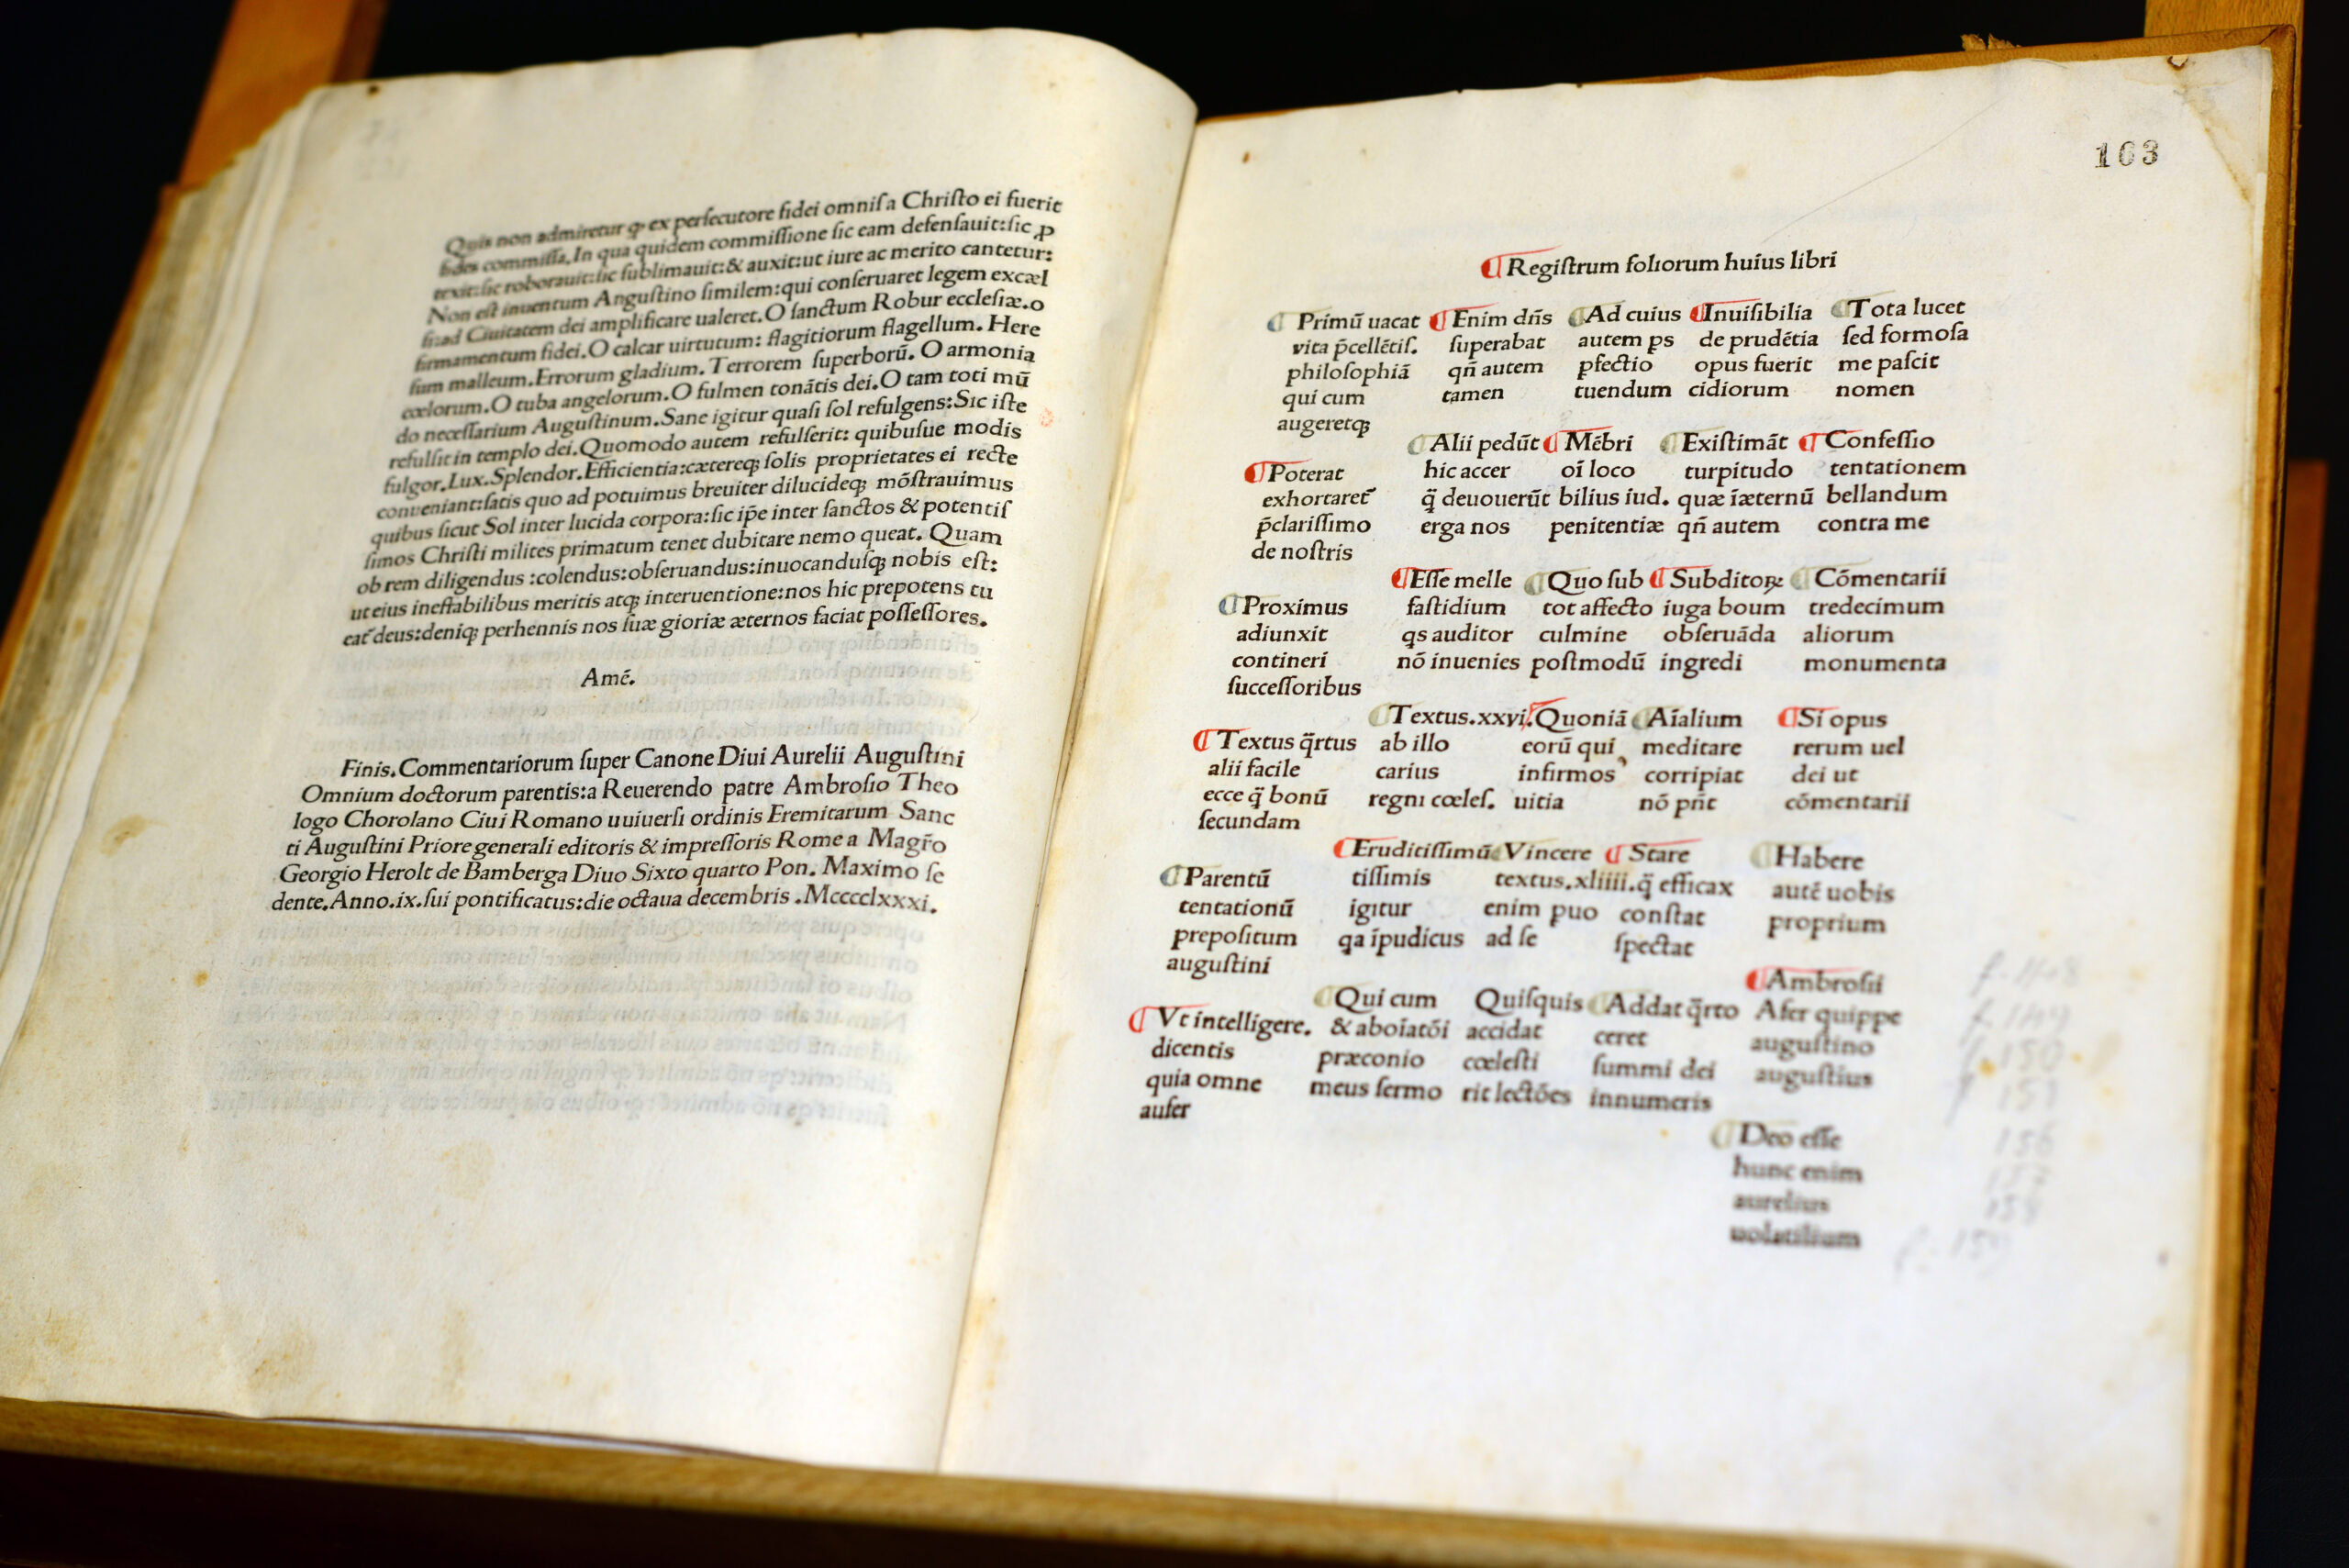 Quis non admiretur ꝙ ex perſecutore fidei omniſ a Chriſto ei fuerit
fides commiſſa. In qua quidem commiſſione ſic eam defenſauit: ſic ꝓ
texit: ſic roborauit: ſic ſublimauit: & auxit: ut iure ac merito cantetur:
Non eſt inuentum Anguſtino ſimilem: qui conſeruaret legem excæl
ſi: ad Ciuitatem dei amplificare ualeret. O ſanctum Robur eccleſiæ. o
firmamentum fidei. O calcar uirtutum: flagitiorum flagellum. Here
ſum malleum. Errorum gladium. Terrorem ſuperborū. O armonia
cœlorum. O tuba angelorum. O fulmen tonātis dei. O tam toti mū
do neceſſarium Auguſtinum. Sane igitur quaſi ſol refulgens: Sic iſte
refulſit in templo dei. Quomodo autem refulſerit: quibuſue modis
fulgor. Lux. Splendor. Efficientia: cætereqꝫ ſolis proprietates ei recte
conueniant: ſatis quo ad potuimus breuiter dilucideqꝫ mōſtrauimus
quibus ſicut Sol inter lucida corpora: ſic ip̄e inter ſanctos & potentiſ
ſimos Chriſti milites primatum tenet dubitare nemo queat. Quam
ob rem diligendus : colendus: obſeruandus: inuocanduſqꝫ nobis eſt:
ut eius ineffabilibus meritis atqꝫ interuentione: nos hic prepotens tu
eat̄ deus: deniqꝫ perhennis nos ſuæ gioriæ æternos faciat poſſeſſores.
Amē.
Finis. Commentariorum ſuper Canone Diui Aurelii Auguſtini
Omnium doctorum parentis: a Reuerendo patre Ambroſio Theo
logo Chorolano Ciui Romano uuiuerſi ordinis Eremitarum Sanc
ti Auguſtini Priore generali editoris & impreſſoris Rome a Magr̄o
Georgio Herolt de Bamberga Diuo Sixto quarto Pon. Maximo ſe
dente. Anno. ix. ſui pontificatus: die octaua decembris . Mcccclxxxi.
163
Regiſtrum foliorum huius libri
Primū uacat
vita p̄cellētiſ.
philoſophiā
qui cum
augeretqꝫ
Poterat
exhortaret̄
p̄clariſſimo
de noſtris
Proximus
adiunxit
contineri
ſucceſſoribus
Textus q̄rtus
alii facile
ecce q̄ bonū
ſecundam
Parentū
tentationū
prepoſitum
auguſtini
Vt intelligere.
dicentis
quia omne
aufer
Enim dn̄s
ſuperabat
qn̄ autem
tamen
Alii pedūt
hic accer
q̄ deuouerūt
erga nos
Eſſe melle
faſtidium
qs auditor
nō inuenies
Textus. xxvi.
ab illo
carius
regni cœleſ.
Eruditiſſimū
tiſſimis
igitur
qa īpudicus
Qui cum
& aboīatōi
præconio
meus ſermo
Ad cuius
autem ps
ꝑfectio
tuendum
Mēbri
oī loco
bilius iud.
penitentiæ
Quo ſub
tot affecto
culmine
poſtmodū
Quoniā
eorū qui
infirmos
uitia
Vincere
textus. xliiii.
enim puo
ad ſe
Quiſquis
accidat
cœleſti
rit lectōes
Inuiſibilia
de prudētia
opus fuerit
cidiorum
Exiſtimāt
turpitudo
quæ īæternū
qn̄ autem
Subditoꝝ
iuga boum
obſeruāda
ingredi
Aīalium
meditare
corripiat
nō pn̄t
Stare
q̄ efficax
conſtat
ſpectat
Addat q̄rto
ceret
ſummi dei
innumeris
Tota lucet
ſed formoſa
me paſcit
nomen
Confeſſio
tentationem
bellandum
contra me
Cōmentarii
tredecimum
aliorum
monumenta
Si opus
rerum uel
dei ut
cōmentarii
Habere
autē uobis
proprium
Ambroſii
Afer quippe
auguſtino
auguſtius
Deo eſſe
hunc enim
aurelius
uolatilium
f. 148
f. 149
f. 150
f 151
156
157
158
f. 159